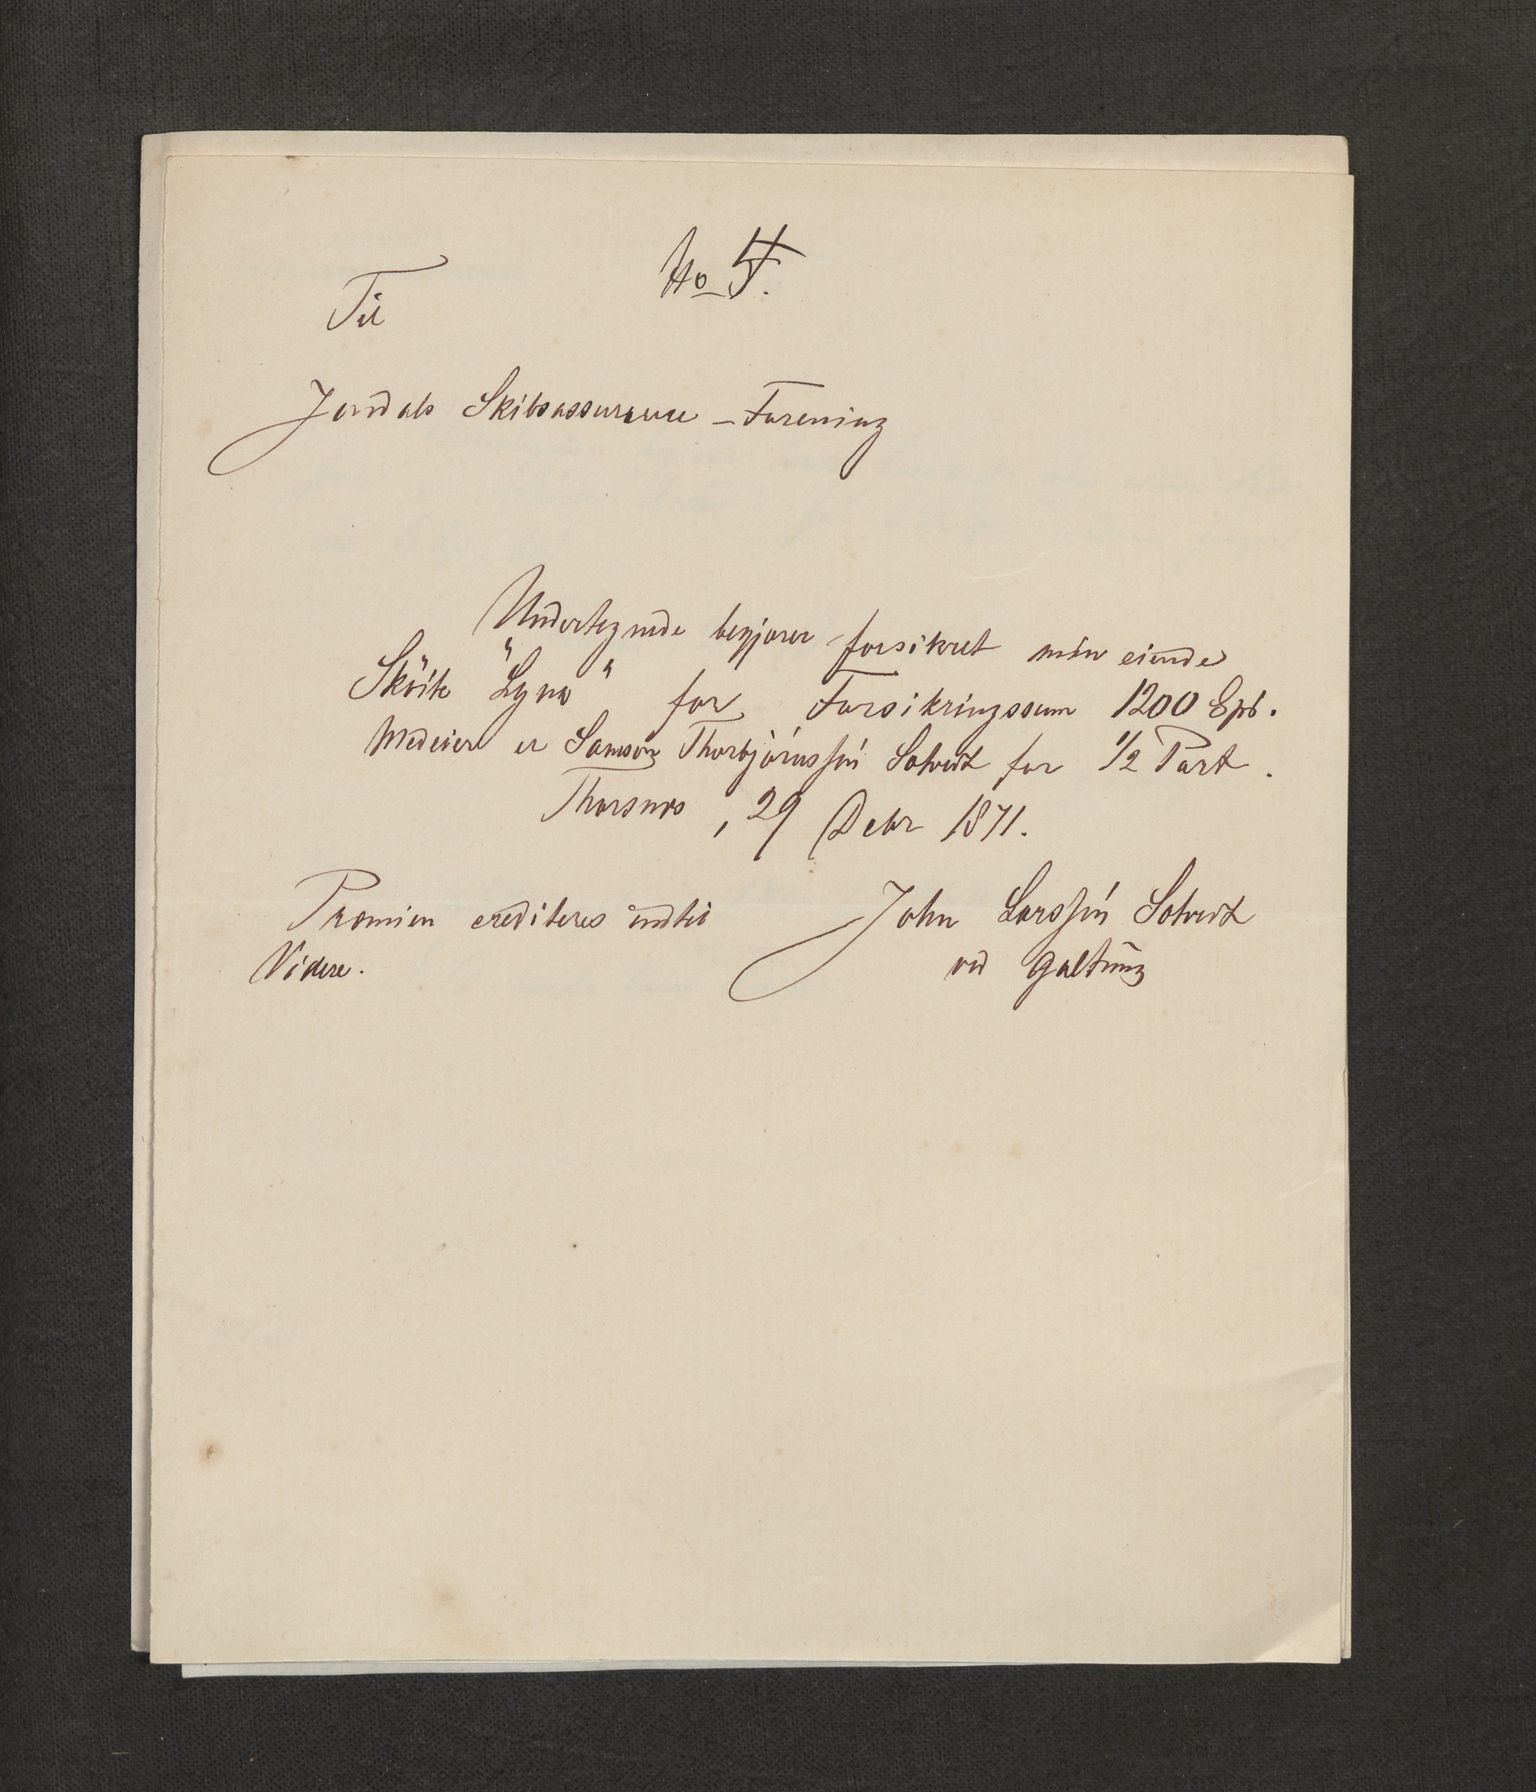 No 4.
Til
Jondals Skibsassurance-Forening
Undertegnede begjærer forsikret min eiende
Sköite "Lyna" for Forsikringssum 1200 Spd.
Medeier er Samson Thorbjörnssön Solvedt for 1/2 Part.
Thorsnæs, 29 Debr 1871.
Præmien crediteres indtil
Videre.
John Larssön Solvedt
ved Galtung